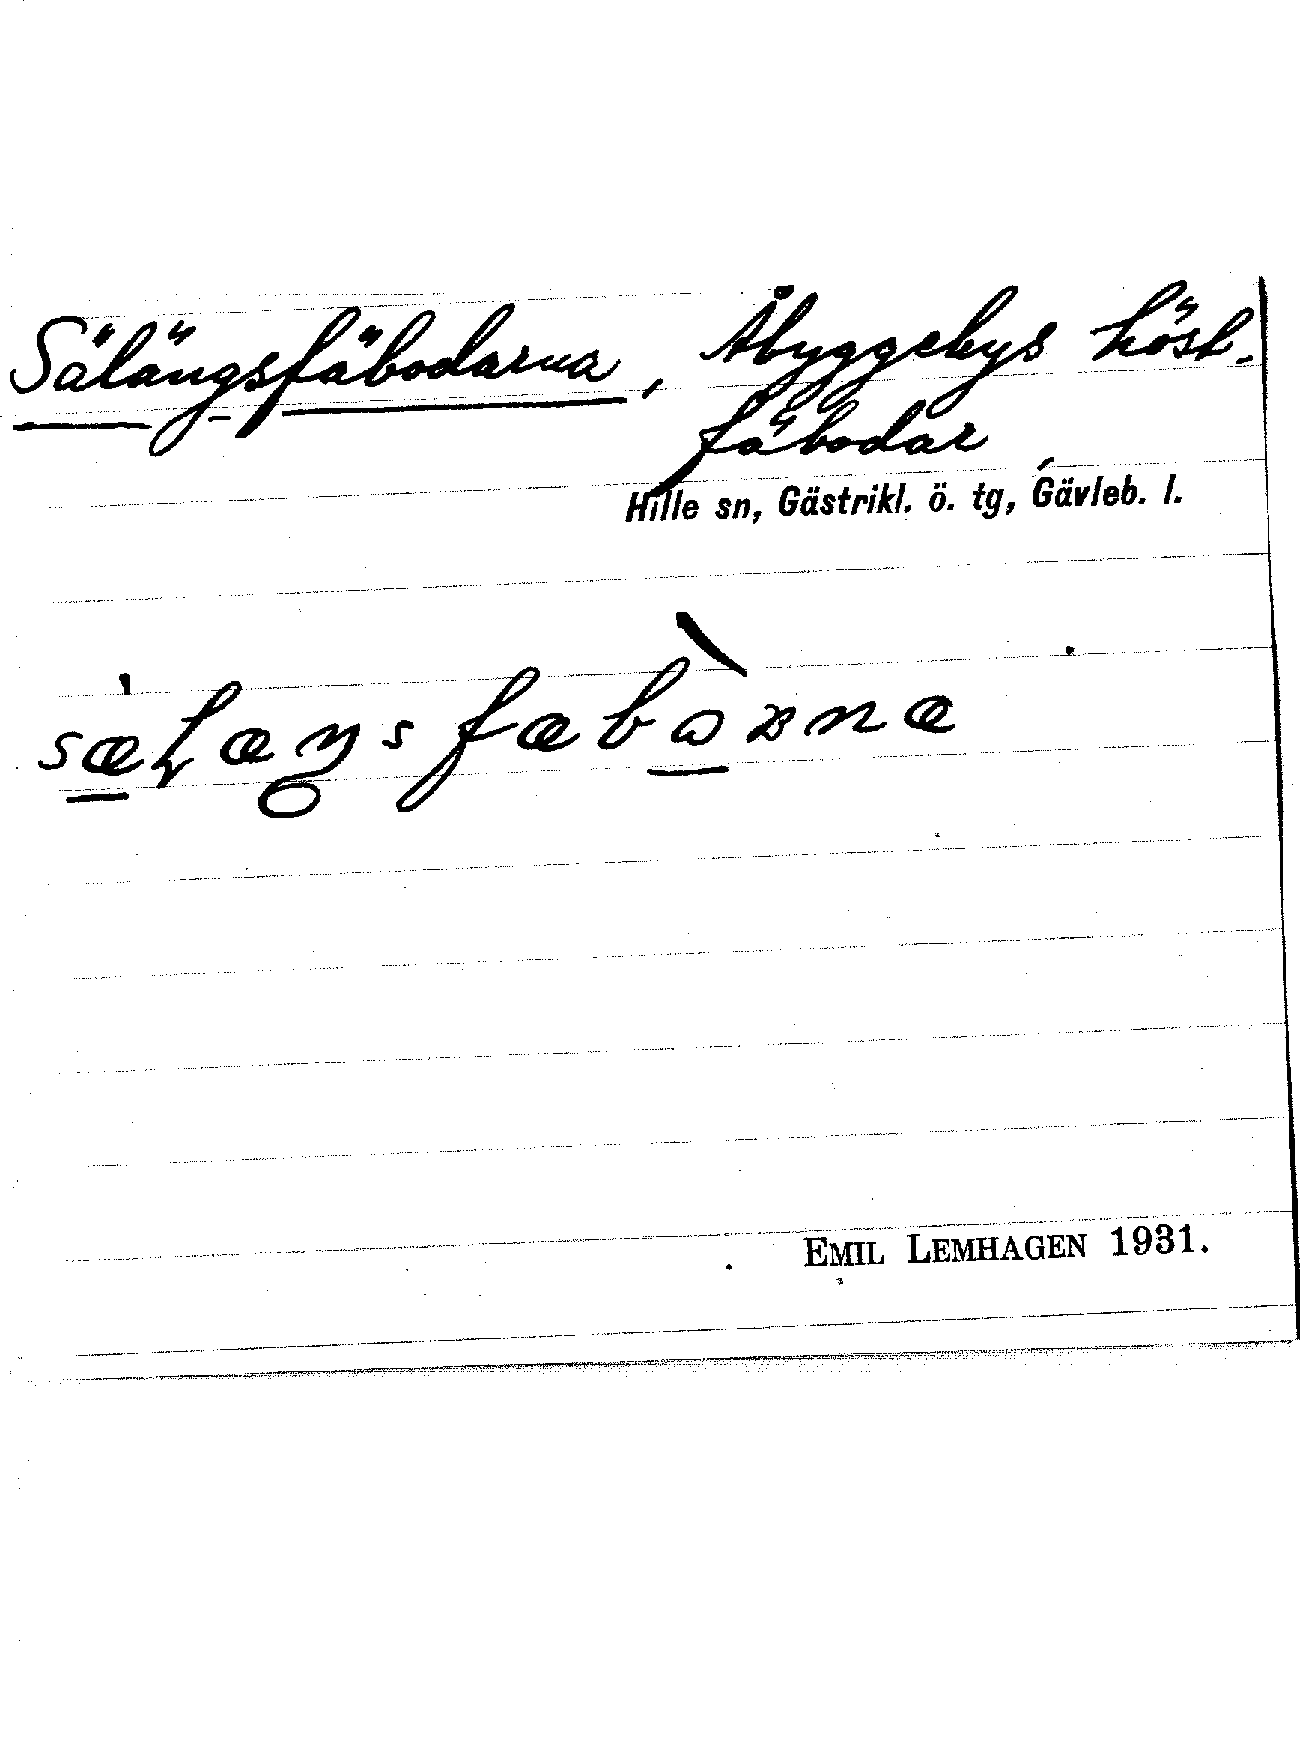 Sälängsfäbodarna, Åbyggebys höst-
fäbodar
Hille sn, Gästrikl. ö. tg, Gävleb. l.
EMIL LEMHAGEN 1931.